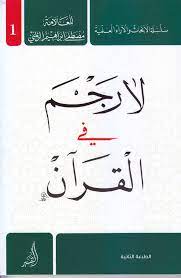 سلسلة الأبحاث والآراء العلمية
للعلامة
مصطفى ابراهيم الزلمي
1
لا رجم
في
القرآن
الطبعة الثانية
التفسير